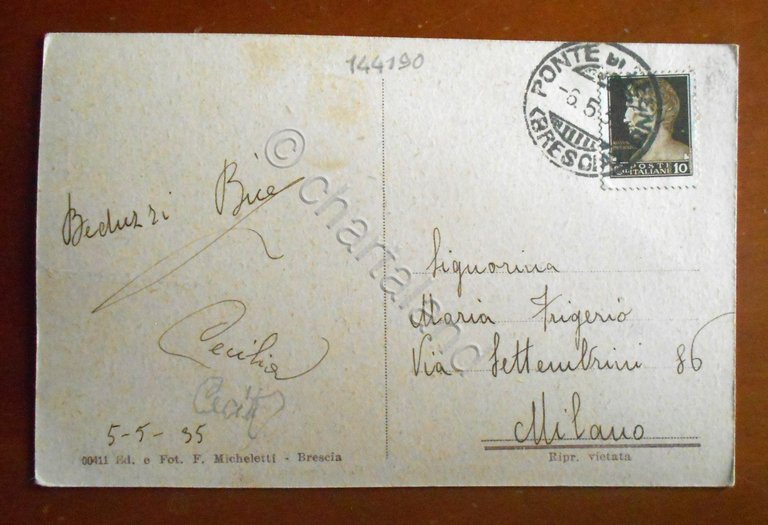 144190
PONTE DI
-6.5
(BRESCIA)
POSTE
ITALIANE 10
Beduzzi Bice
Cecilia
5-5-35
00411 Ed. e Fot. F. Micheletti - Brescia
Signorina
Maria Frigerio
Via Settembrini 86
Milano
Ripr. vietata
© chartaland